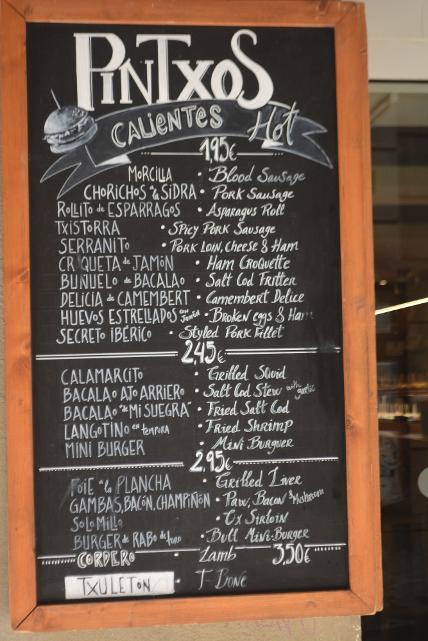 PINTXOS
CALIENTES Hot
1,95€
MORCILLA • Blood Sausage
CHORICHOS a la SIDRA • Pork Sausage
ROLLITO de ESPARRAGOS • Asparagus Roll
TXISTORRA • Spicy Pork Sausage
SERRANITO • Pork Loin, Cheese & Ham
CROQUETA de JAMÓN • Ham Croquette
BUÑUELO de BACALAO • Salt Cod Fritter
DELICIA de CAMEMBERT • Camembert Delice
HUEVOS ESTRELLADOS con Jamón • Broken eggs & Ham
SECRETO IBÉRICO • Styled Pork Fillet
2,45€
CALAMARCITO • Grilled Squid
BACALAO AJO ARRIERO • Salt Cod Stew with garlic
BACALAO "de MI SUEGRA" • Fried Salt Cod
LANGOTINO en tempura • Fried Shrimp
MINI BURGER • Mini Burguer
2,95€
FOIE a la PLANCHA • Grilled Liver
GAMBAS, BACÓN, CHAMPIÑÓN • Paw, Bacon & Mushroom
SOLOMILLO • Ox Sirloin
BURGER de RABO de toro • Bull Mini-Burger
CORDERO • Lamb 3,50€
TXULETON • T Bone